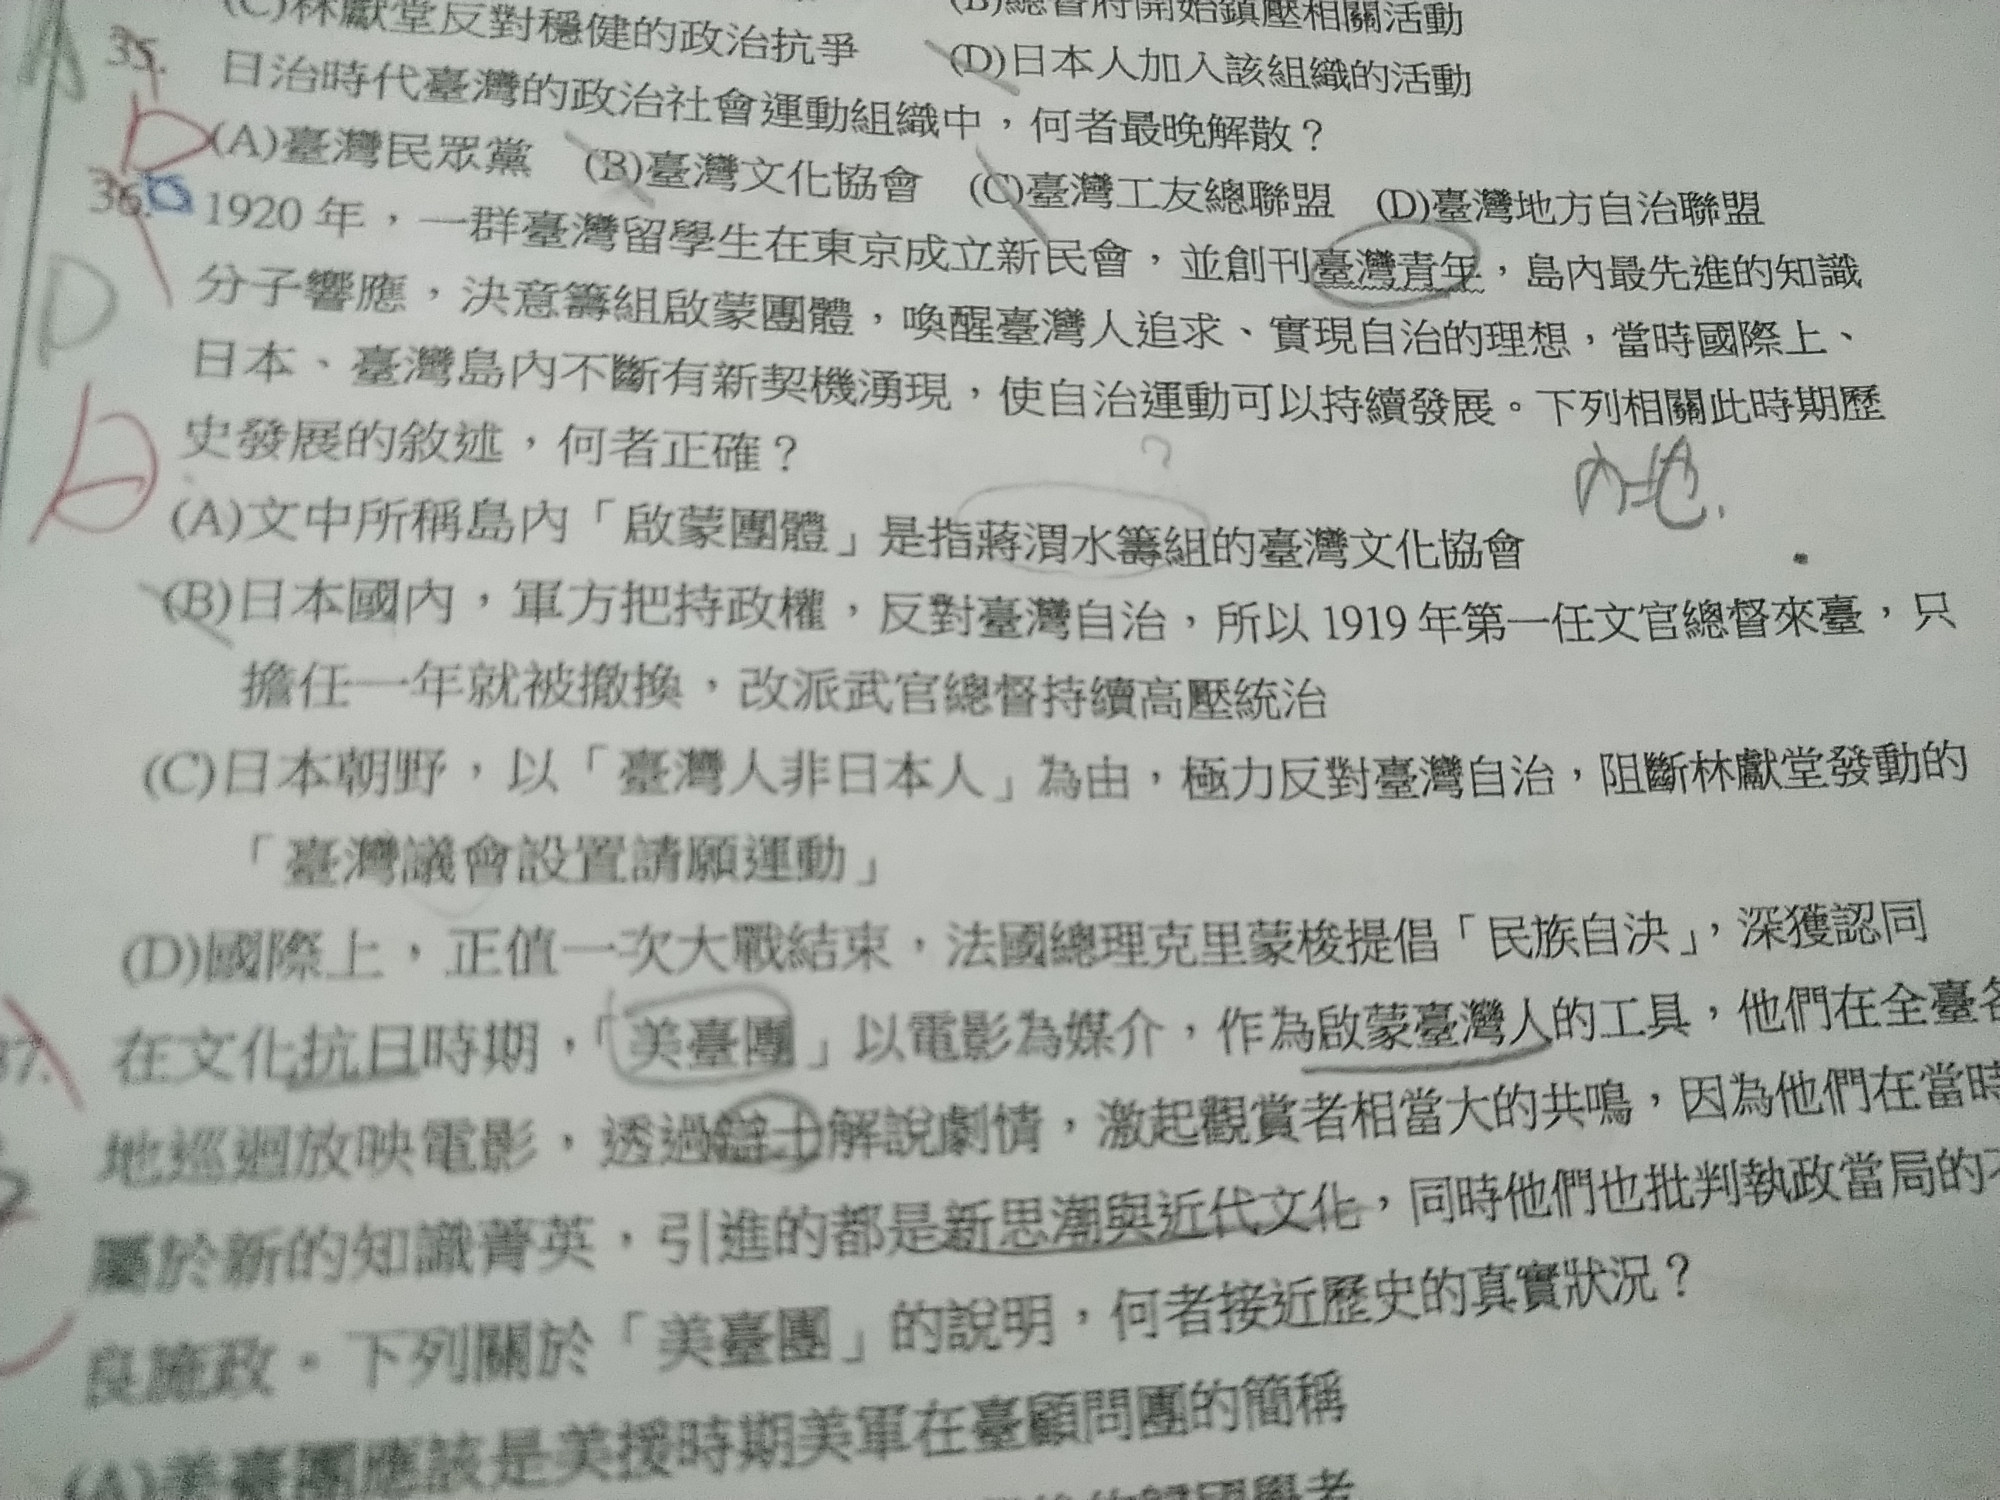 (C)林獻堂反對穩健的政治抗爭
(B)總督府開始鎮壓相關活動
(D)日本人加入該組織的活動
35.
日治時代臺灣的政治社會運動組織中，何者最晚解散？
D
(A)臺灣民眾黨 (B)臺灣文化協會 (C)臺灣工友總聯盟 (D)臺灣地方自治聯盟
36.
1920 年，一群臺灣留學生在東京成立新民會，並創刊臺灣青年，島內最先進的知識
D
分子響應，決意籌組啟蒙團體，喚醒臺灣人追求、實現自治的理想，當時國際上、
日本、臺灣島內不斷有新契機湧現，使自治運動可以持續發展。下列相關此時期歷
史發展的敘述，何者正確？
?
內地.
(A)文中所稱島內「啟蒙團體」是指蔣渭水籌組的臺灣文化協會
(B)日本國內，軍方把持政權，反對臺灣自治，所以 1919 年第一任文官總督來臺，只
擔任一年就被撤換，改派武官總督持續高壓統治
(C)日本朝野，以「臺灣人非日本人」為由，極力反對臺灣自治，阻斷林獻堂發動的
「臺灣議會設置請願運動」
(D)國際上，正值一次大戰結束，法國總理克里蒙梭提倡「民族自決」，深獲認同
37.
在文化抗日時期，「美臺團」以電影為媒介，作為啟蒙臺灣人的工具，他們在全臺各
地巡迴放映電影，透過辯士解說劇情，激起觀賞者相當大的共鳴，因為他們在當時
屬於新的知識菁英，引進的都是新思潮與近代文化，同時他們也批判執政當局的不
良施政。下列關於「美臺團」的說明，何者接近歷史的真實狀況？
(A)美臺團應該是美援時期美軍在臺顧問團的簡稱